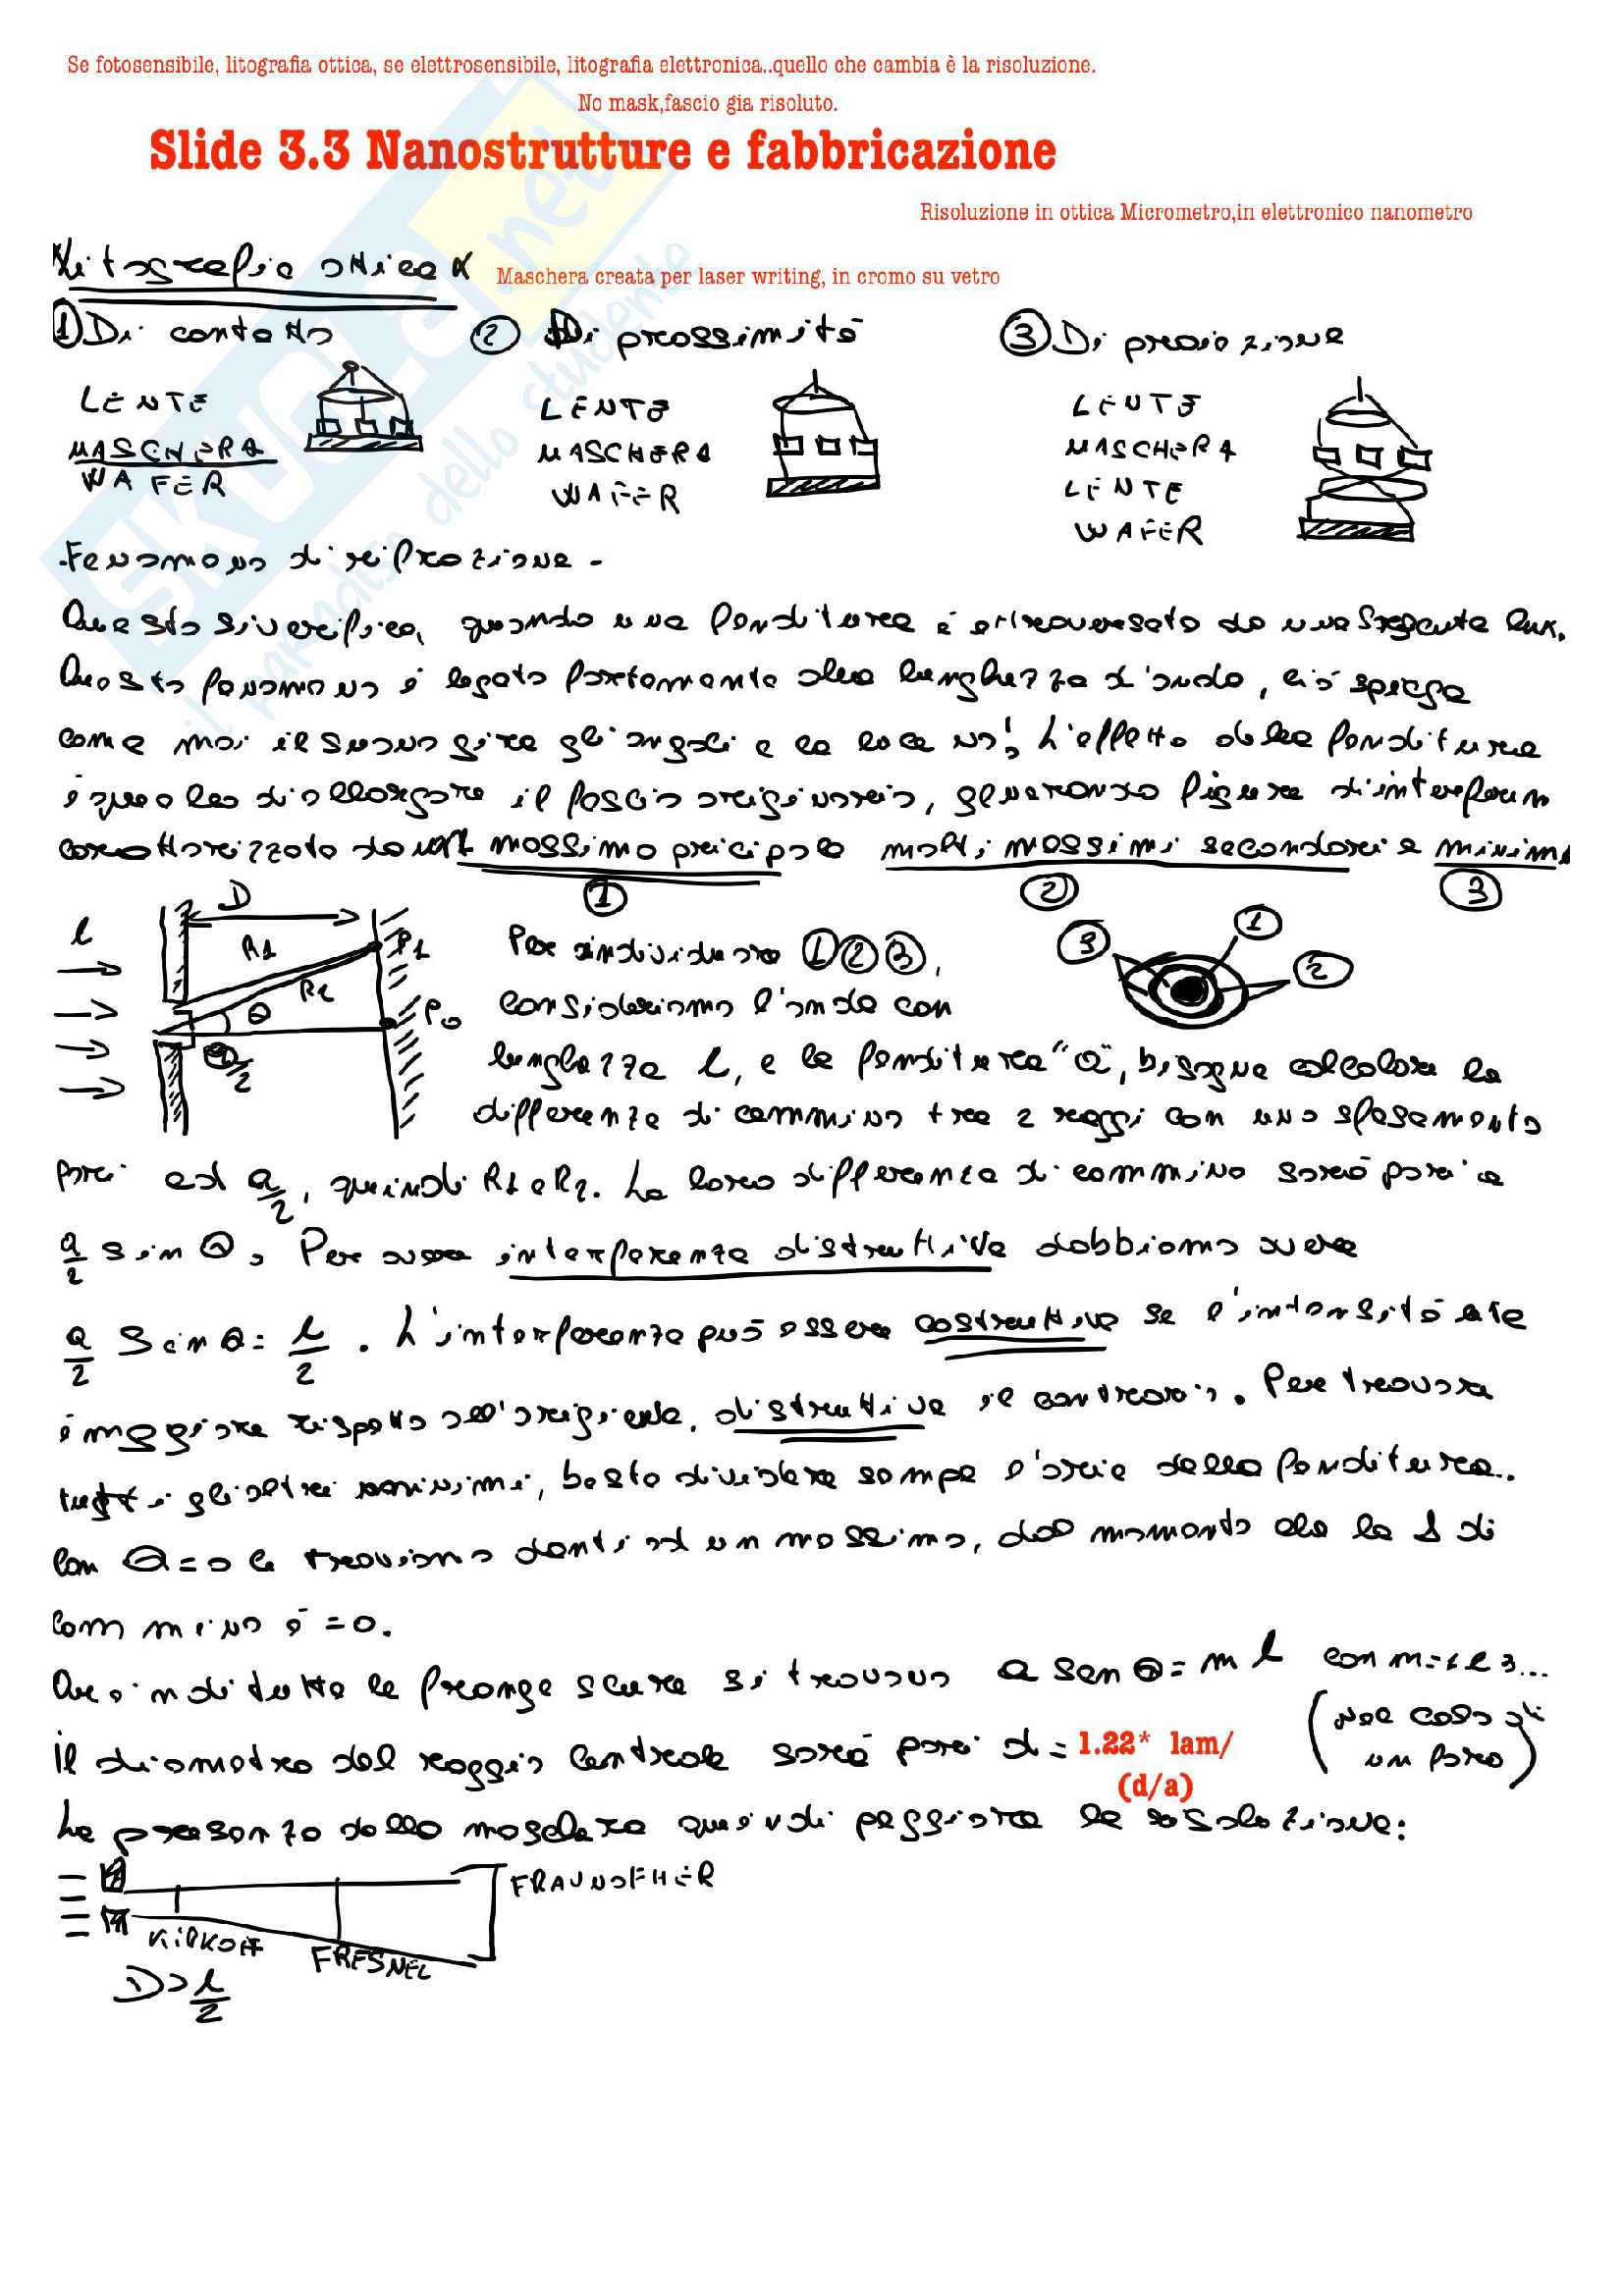 Se fotosensibile, litografia ottica, se elettrosensibile, litografia elettronica..quello che cambia è la risoluzione.
No mask,fascio gia risoluto.
Slide 3.3 Nanostrutture e fabbricazione
Risoluzione in ottica Micrometro,in elettronico nanometro
Litografia ottica
Maschera creata per laser writing, in cromo su vetro
① Di contatto ② Di prossimità ③ Di proiezione
LENTE LENTE LENTE
MASCHERA MASCHERA MASCHERA
WAFER WAFER LENTE
WAFER
skuola.net
il paradiso dello studente
-Fenomeno di difrazione-
Questo si verifica, quando una fenditura è attraversata da una sorgente lum.
Questo fenomeno è legato fortemente alla lunghezza d'onda, ciò spiega
come mai il suono gira gli angoli e la luce no! L'effetto della fenditura
è quello di allargare il fascio originario, generando figure d'interferen
caratterizzato da un massimo pricipale molti massimi secondari e minimi
① ② ③
l D R1 P1 R2 θ P0 a/2
③ ① ②
Per individuare ①②③,
consideriamo l'onda con
lunghezza l, e la fenditura "a", bisogna calcolare la
differenza di cammino tra 2 raggi con uno sfasamento
pari ad a/2, quindi R1 e R2. La loro differenza di cammino sarà pari a
a/2 sin θ. Per avere interferenza distruttiva dobbiamo avere
a/2 sen θ = l/2 . L'interferenza può essere costruttiva se l'intensità
è maggiore rispetto all'origine, distruttiva il contrario. Per trovare
tutti gli altri minimi, basta dividere sempre l'aria della fenditura.
Con θ=0 ci troviamo davanti ad un massimo, dal momento che la Δ di
cammino è =0.
Quindi tutte le frange scure si trovano a sen θ = m l con m=1 2 3...
(nel caso di
un foro)
Il diametro del raggio centrale sarà pari d = 1.22* lam/
(d/a)
La presenza della maschera quindi peggiora la risoluzione:
FRAUNOFHER
KIRKOFF
FRESNEL
D> l/2